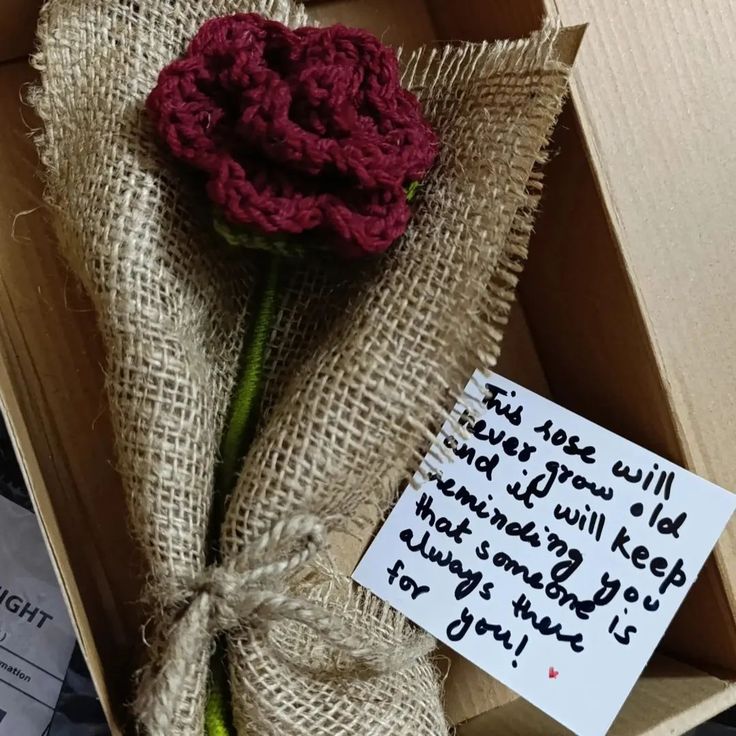 This rose will
never grow old
and it will keep
reminding you
that someone is
always there
for you!
IGHT
)
mation